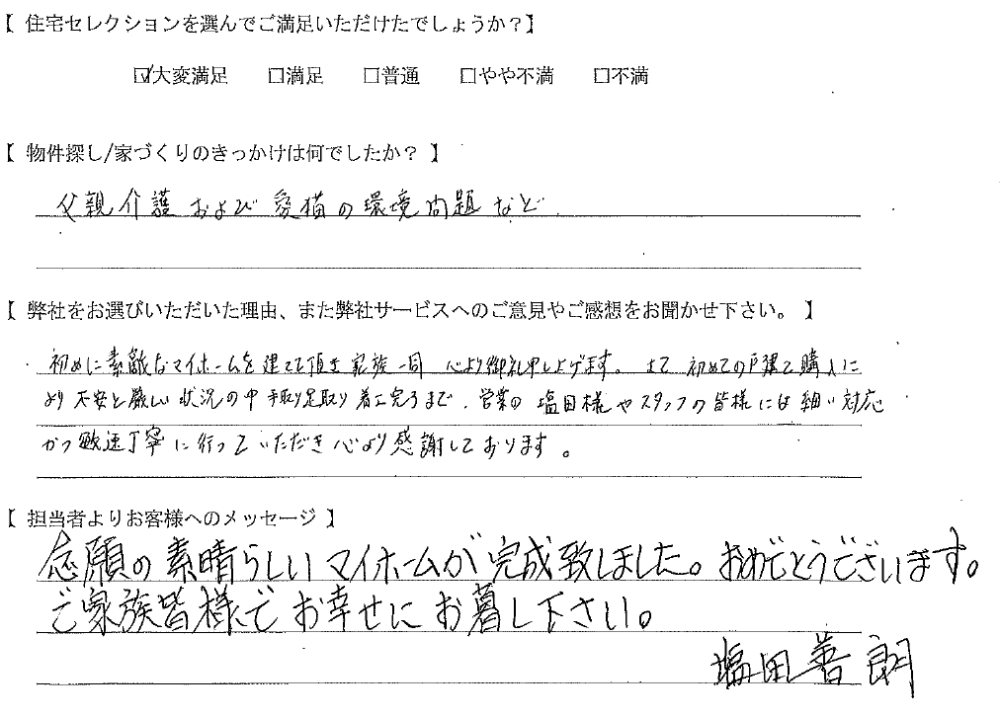 【 住宅セレクションを選んでご満足いただけたでしょうか？】
☑大変満足 □満足 □普通 □やや不満 □不満
【 物件探し/家づくりのきっかけは何でしたか？ 】
父親介護および愛猫の環境問題など
【 弊社をお選びいただいた理由、また弊社サービスへのご意見やご感想をお聞かせ下さい。 】
初めに素敵なマイホームを建てて頂き家族一同 心より御礼申し上げます。 さて 初めての戸建て購入に
より 不安と厳しい状況の中 手取り足取り 着工完了まで、営業の 塩田様やスタッフの皆様には 細い対応
かつ 迅速丁寧に行っていただき心より感謝しております。
【 担当者よりお客様へのメッセージ 】
念願の素晴らしいマイホームが完成致しました。おめでとうございます。
ご家族皆様でお幸せにお暮し下さい。
塩田善朗